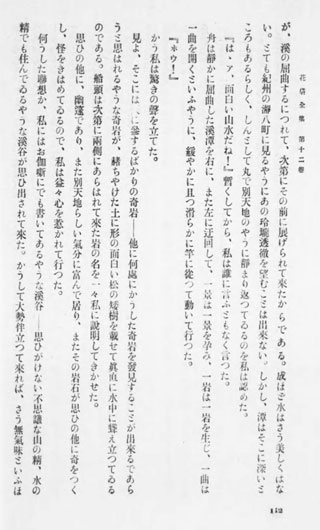 花袋全集 第十二卷
が、溪の屈曲するにつれて、次第にその前に展げられて來たからである。成ほど水はさう美しくはな
い。とても紀州の瀞八町に見るやうにあの玲瓏透徹を望むことは出來ない。しかし、潭はそこに深いと
ころもあるらしく、しんとして丸で別天地のやうに靜まり返つてゐるのを私は認めた。
『は、ア、面白い山水だね！』暫くしてから、私は誰に言ふともなく言つた。
舟は靜かに屈曲した溪潭を右に、また左に迂回して、一景は一景を孕み、一岩は一岩を生じ、一曲は
一曲を開くといふやうに、緩やかに且つ滑らかに竿に從つて動いて行つた。
『ホウ！』
かう私は驚きの聲を立てた。
見よ、そこには、參するばかりの奇岩――他に何處にかうした奇岩を發見することが出來るであら
うと思はれるやうな奇岩が、赭ちやけた土に形の面白い松の矮樹を載せて眞直に水中に聳え立つてゐる
のである。船頭は次第に兩側にあらはれて來た岩の名を一々私に說明してきかせた。
思ひの他に、幽邃であり、また別天地らしい氣分に富んで居り、またその岩石が思ひの他に奇をつく
し、怪をきはめてゐるので、私は益々心を惹かれて行つた。
何うした聯想か、私にはお伽噺にでも書いてあるやうな溪谷――思ひがけない不思議な山の精、水の
精でも住んでゐるやうな溪谷が思ひ出されて來た。かうして大勢伴立つて來れば、さう無氣味といふほ
152